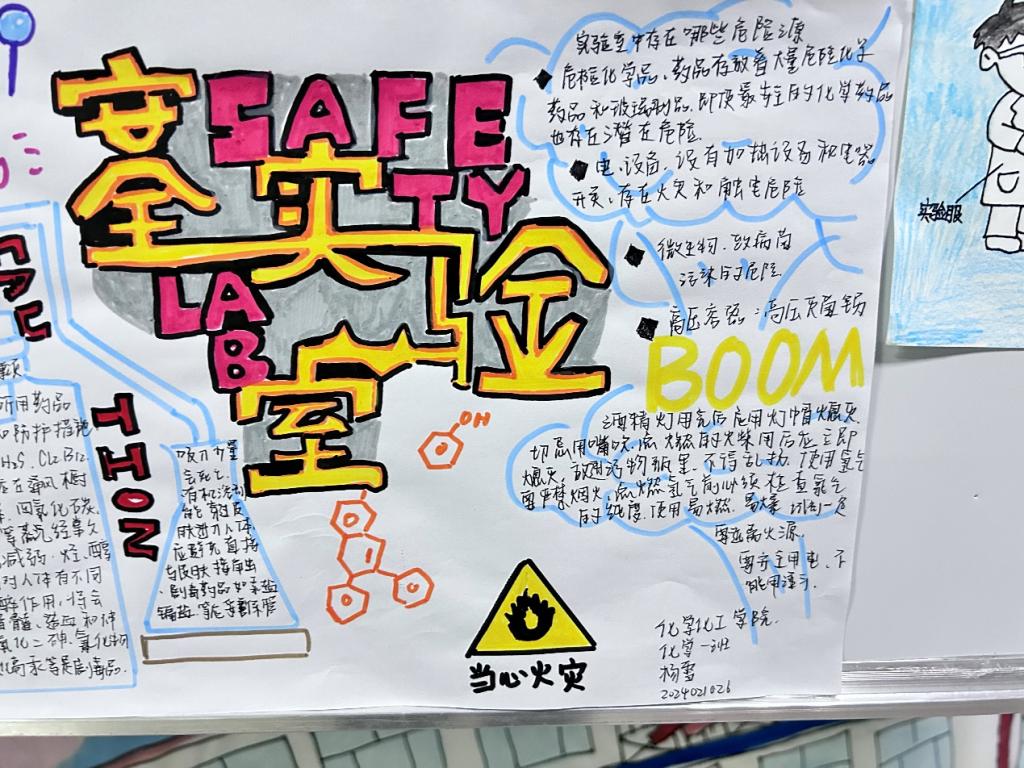 SAFE
TY
LAB
安全实验室
实验室中存在哪些危险源
危险化学品、药品存放着大量危险化学
药品和玻璃制品.即使最安全的化学药品
也存在潜在危险.
电、设备,没有加热设备和电器
开关,存在火灾和触电危险
微生物、致病菌
污染的危险
高压容器:高压灭菌锅
BOOM
酒精灯用完后应用灯帽熄灭.
切忌用嘴吹.点燃的火柴用后应立即
熄灭,放进污物瓶里.不得乱扔.使用氢气
要严禁烟火.点燃氢气前必须检查氢气
的纯度.使用易燃、易爆
要远离火源.
要安全用电、不
能用湿手.
实验服
TION
所用药品
和防护措施
H₂S、Cl₂、Br₂
在通风橱
四氯化碳
蒸汽经常久
减弱.烃、醇
对人体有不同
醉作用,将会
骨髓、
氧化二砷、氰化物
等是剧毒品.
吸入少量
会死亡.
有机溶剂
能穿过皮
肤进入人体
应避免直接
与皮肤接触
剧毒药品如汞盐
镉盐
OH
当心火灾
化学化工学院
化学一班
杨雪
2024021026